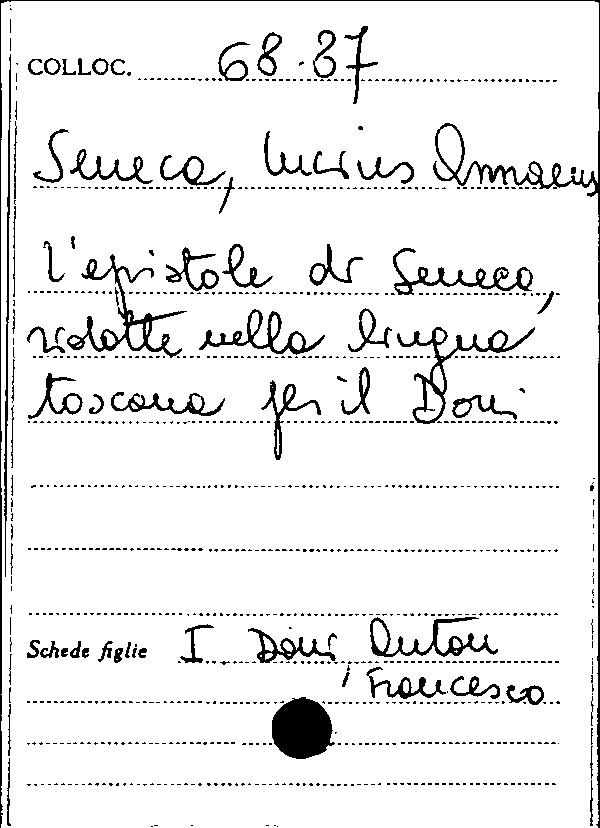 COLLOC. 68.37
Seneca, Lucius Annaeus
L'epistole di Seneca,
ridotte nella lingua
toscana per il Doni
Schede figlie I Doni, Anton
Francesco